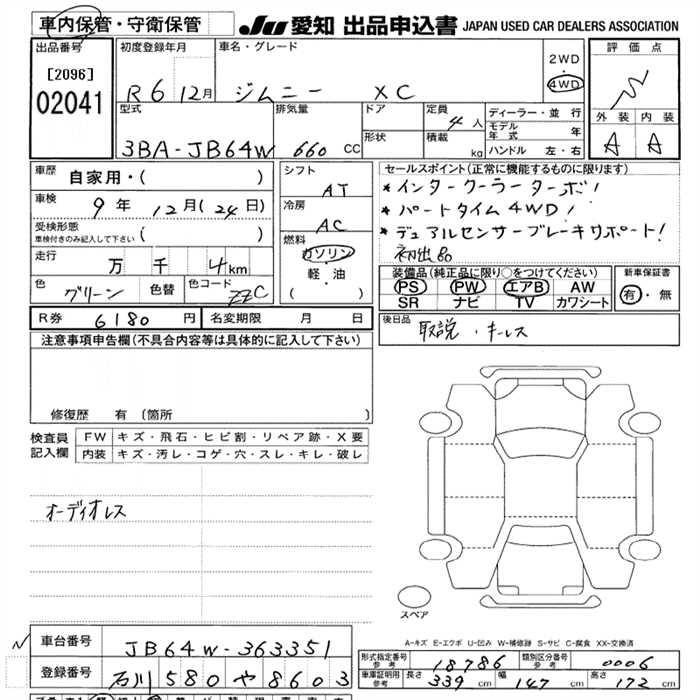 車内保管・守衛保管
JU 愛知 出品申込書 JAPAN USED CAR DEALERS ASSOCIATION
出品番号
[2096]
02041
初度登録年月
R6 12月
車名・グレード
ジムニー XC
2WD
4WD
評価点
外装 内装
A A
型式
3BA-JB64W
排気量
660 CC
ドア
形状
定員
4人
積載
kg
ディーラー・並行
モデル年式 年
ハンドル 左・右
車歴
自家用・( )
車検
9年 12月(24日)
受検形態
車検付きのみ記入して下さい ( )
走行
万 千 4km
色
グリーン
色替
色コード
ZZC
シフト
AT
冷房
AC
燃料
ガソリン
・
軽・油
( )
セールスポイント(正常に機能するものに限ります)
* インタークーラーターボ!
* パートタイム4WD!
* デュアルセンサーブレーキサポート!
初出品
装備品(純正品に限り○をつけてください)
PS PW エアB AW
SR ナビ TV カワシート
新車保証書
有・無
R券 6180円
名変期限 月 日
後日品
取説・キーレス
注意事項申告欄(不具合内容等は具体的に記入して下さい)
修復歴 有(箇所 )
検査員記入欄
FW キズ・飛石・ヒビ割・リペア跡・X要
内装 キズ・汚レ・コゲ・穴・スレ・キレ・破レ
オーディオレス
スペア
A-キズ E-エクボ U-凹み W-補修跡 S-サビ C-腐食 XX-交換済
N
車台番号
JB64W-363351
登録番号
石川 580 や 8603
形式指定番号
参考
18786
類別区分番号
参考
0006
車庫証明用
参考
長さ 339 cm
幅 147 cm
高さ 172 cm